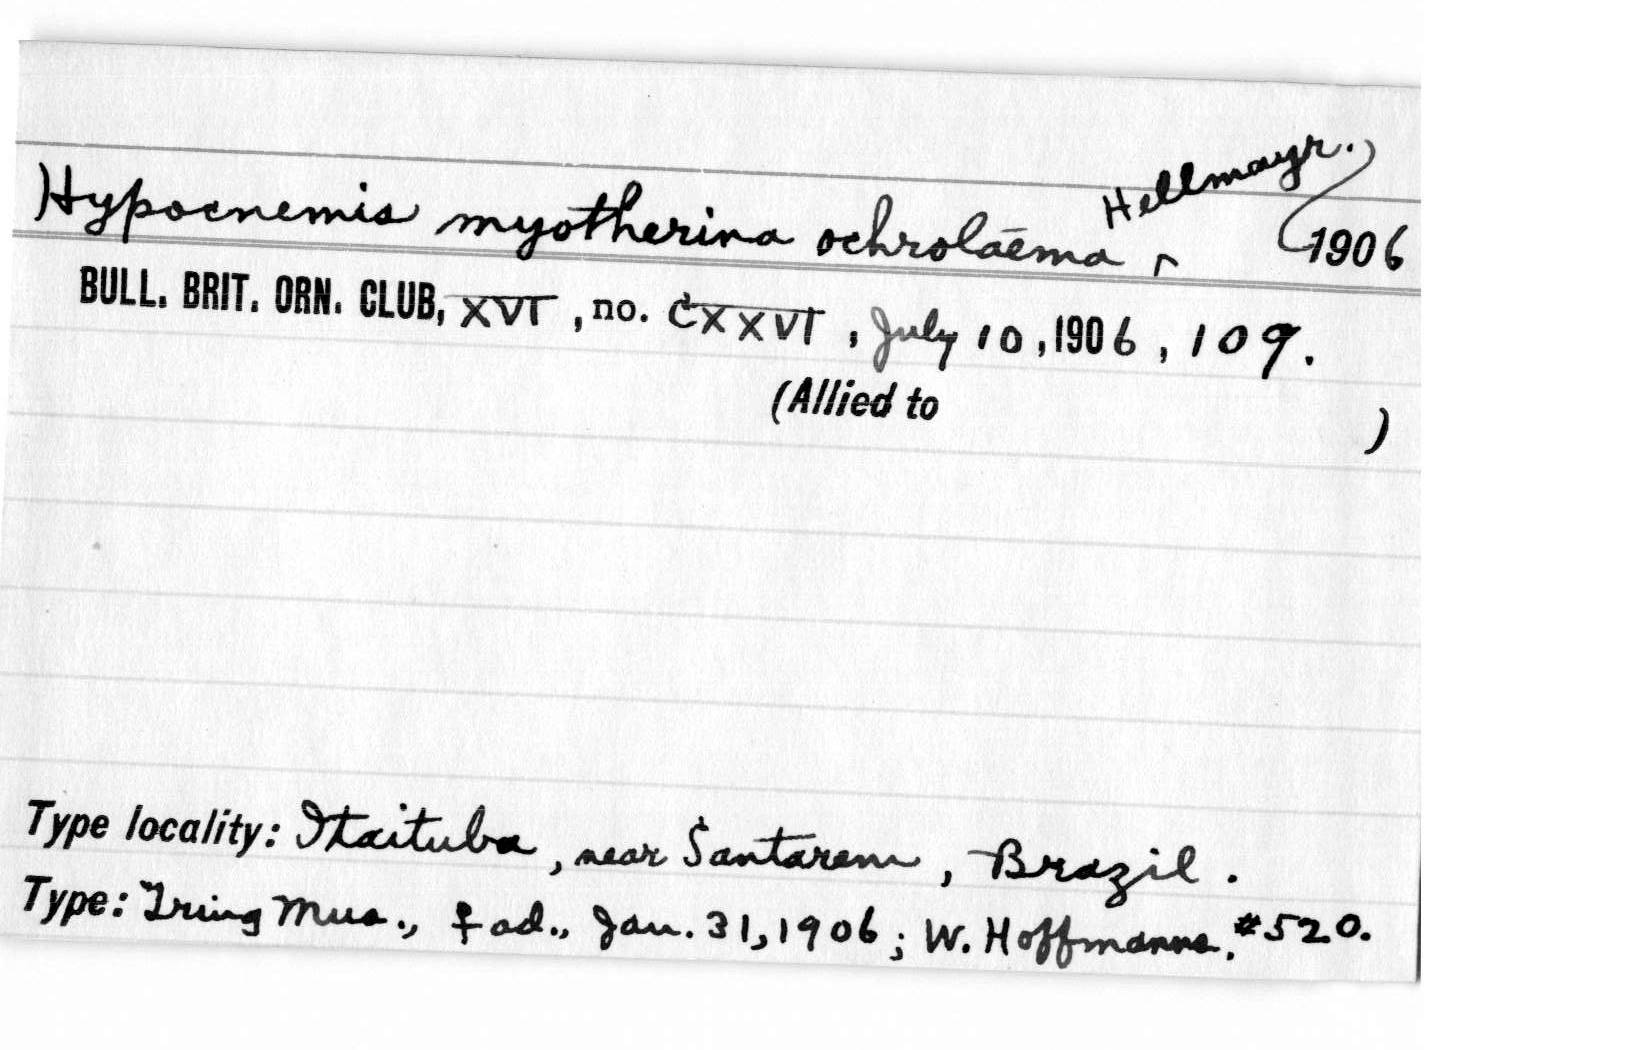 Hypocnemis myotherina ochrolaema ^ Hellmayr. 1906
BULL. BRIT. ORN. CLUB, XVI, no. CXXVI, July 10, 1906, 109.
(Allied to )
Type locality: Itaituba, near Santarem, Brazil.
Type: Tring Mus., ♀ ad., Jan. 31, 1906; W. Hoffmanns. #520.